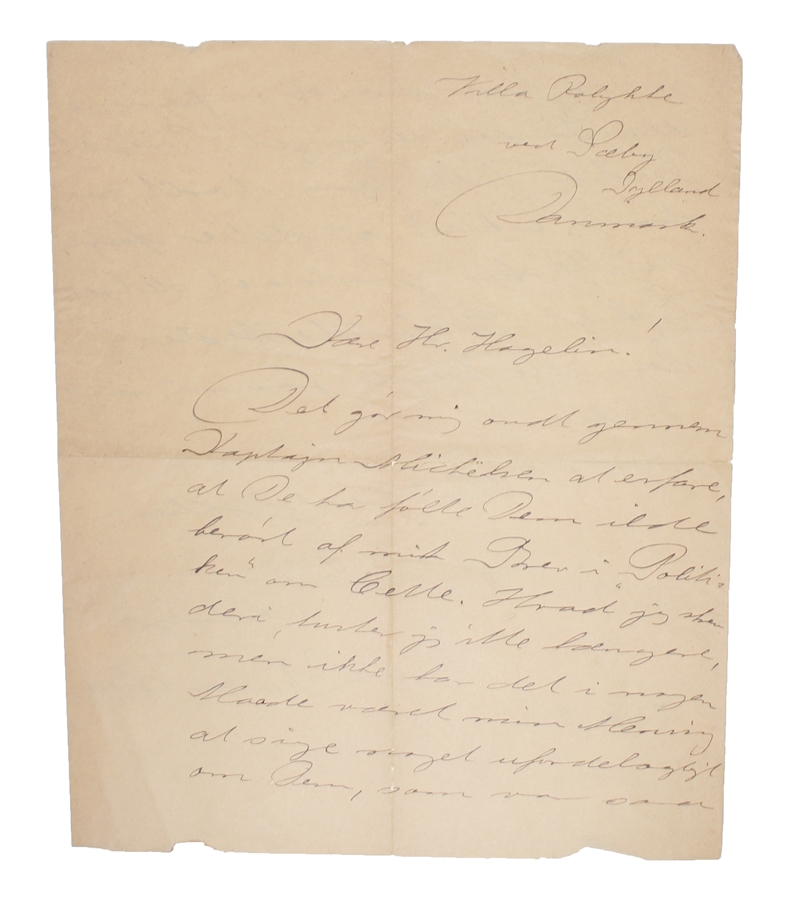 Villa Rolykke
ved Sæby
Jylland
Danmark.
Kære Hr. Hagelin!
Det gør mig ondt gennem
Kaptajn Michelsen at erfare,
at De har følt Dem ilde
berørt af mit Brev i "Politi-
ken" om Cette. Hvad jeg skrev
deri, husker jeg ikke længere,
men ikke har det i nogen
Maade været min Mening
at sige noget ufordelagtigt
om Dem, som var saa